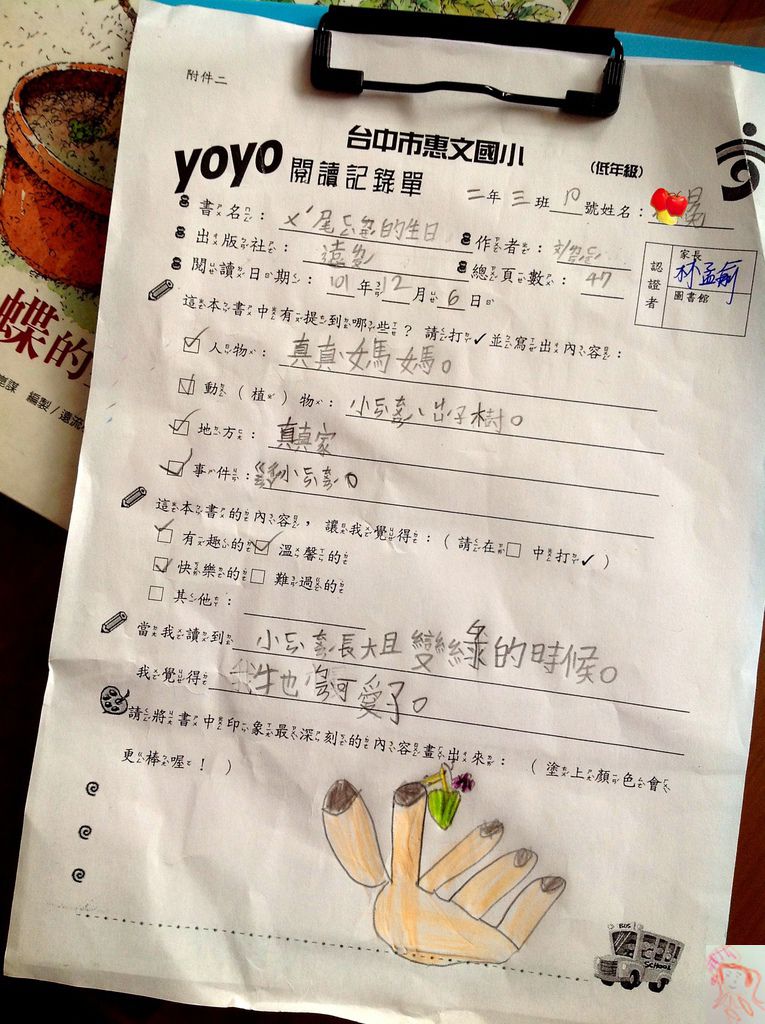 附件二
台中市惠文國小
(低年級)
yoyo 閱讀記錄單
二年三班 號姓名：
書名： 的生日
出版社：遠
作者：
閱讀日期：101年12月6日
總頁數：47
認證者
家長
林孟俞
圖書館
這本書中有提到哪些？請打✓並寫出內容：
人物：真真、媽媽。
動(植)物：小 樹。
地方：真真家
事件： 小
這本書的內容，讓我覺得：(請在□中打✓)
有趣的 溫馨的
快樂的 難過的
其他：
當我讀到 小 長大且變綠的時候。
我覺得 牠 可愛了。
請將書中印象最深刻的內容畫出來：(塗上顏色會
更棒喔！)
蝶的
編製/遠流
BUS
SCHOOL